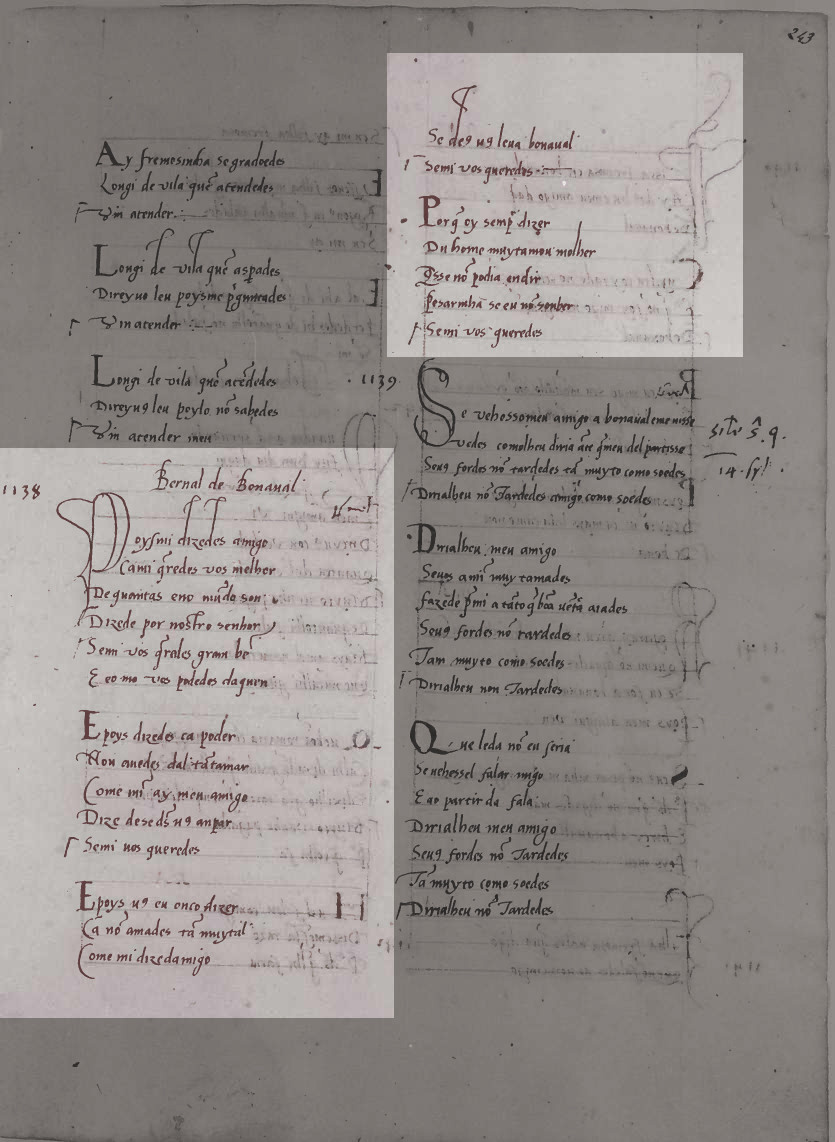 243
Ay fremosinha se gradoedes
Longi de vila quẽ atendedes
Vin atender
Longi de vila quẽ asꝑades
Direyuo leu poys me p̃guntades
Vin atender
Longi de vila quẽ atẽdedes
Direyuꝯ leu poylo nõ sabedes
Vin atender meu
1138
Bernal de Bonaual
Poys mi dizedes amigo
Ca mi q̃redes vos melhor
De quantas eno mũdo son
Dizede por nostro senhor
Se mi vos q̃redes gran bẽ
E como vos podedes daquen
E poys dizedes ca poder
Non auedes dal tã tamar
Come mĩ ay meu amigo
Dize de se dſ uꝯ anpar
Se mi uos queredes
E poys uꝯ eu ouco dizer
Ca nõ amades tã muytal
Come mi dized amigo
Se deꝯ uꝯ leua bonaual
Se mi vos queredes
Por q̃ oy semp̃ dizer
Du home muytamou molher
Q̃sse nõ podia end ir
Pesarmha se eu nõ souber
Se mi vos queredes
1139
Se vehessomeu amigo a bonaual e me uisse
Vedes como lheu diria ãte q̃ meu del partisse
Seuꝯ fordes nõ tardedes tã muyto como soedes
Dirialheu nõ Tardedes amigo como soedes
Dirialheu meu amigo
Seuos a mĩ muy tamades
Fazede p̃ mi a tãto q̃ bõa uẽtã aiades
Seuꝯ fordes nõ tardedes
Tam muyto como soedes
Dirialheu non Tardedes
Que leda nõ eu seria
Se uehessel falar migo
E ao partir da fala
Dirialheu meu amigo
Seuꝯ fordes nõ Tardedes
Tã muyto como soedes
Dirialheu nõ Tardedes